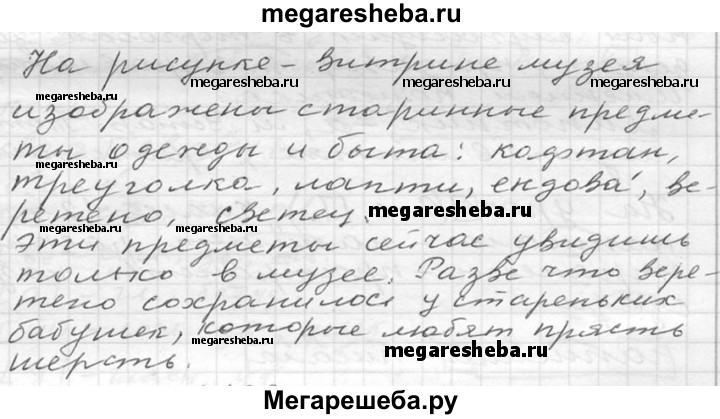 megaresheba.ru
На рисунке - витрине музея
megaresheba.ru megaresheba.ru
изображены старинные предме-
megaresheba.ru
ты одежды и быта: кафтан,
megaresheba.ru
треуголка, лапти, ендова, ве-
ретено, светец.
megaresheba.ru megaresheba.ru
Эти предметы сейчас увидишь
только в музее. Разве что вере-
тено сохранилось у стареньких
бабушек, которые любят прясть
megaresheba.ru megaresheba.ru
шерсть.
Мегарешеба.ру